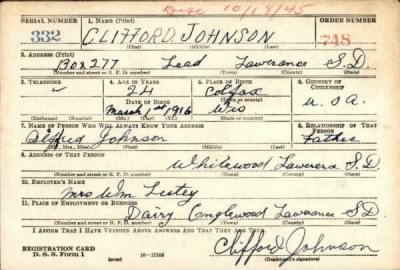 Disc 10/19/45
SERIAL NUMBER 1. NAME (Print) ORDER NUMBER
332 CLIFFORD JOHNSON 748
(First) (Middle) (Last)
3. ADDRESS (Print)
Box 277 Lead Lawerance S.D.
(Number and street or R. F. D. number) (Town) (County) (State)
3. TELEPHONE 4. AGE IN YEARS 5. PLACE OF BIRTH 6. COUNTRY OF CITIZENSHIP
24 Colfax
DATE OF BIRTH (Town or county)
March 1st 1916 Wis U.SA.
(Exchange) (Number) (Mo.) (Day) (Yr.) (State or country)
7. NAME OF PERSON WHO WILL ALWAYS KNOW YOUR ADDRESS 8. RELATIONSHIP OF THAT PERSON
Alfred Johnson Father
(Mr., Mrs., Miss) (First) (Middle) (Last)
9. ADDRESS OF THAT PERSON
Whitewood Lawerera S.D
(Number and street or R. F. D. number) (Town) (County) (State)
10. EMPLOYER'S NAME
Mrs Wm
11. PLACE OF EMPLOYMENT OR BUSINESS
Dairy Englewood Lawerance S.D
(Number and street or R. F. D. number) (Town) (County) (State)
I AFFIRM THAT I HAVE VERIFIED ABOVE ANSWERS AND THAT THEY ARE TRUE.
REGISTRATION CARD Clifford Johnson
D. S. S. Form 1 (over) 16-17105 (Registrant's signature)